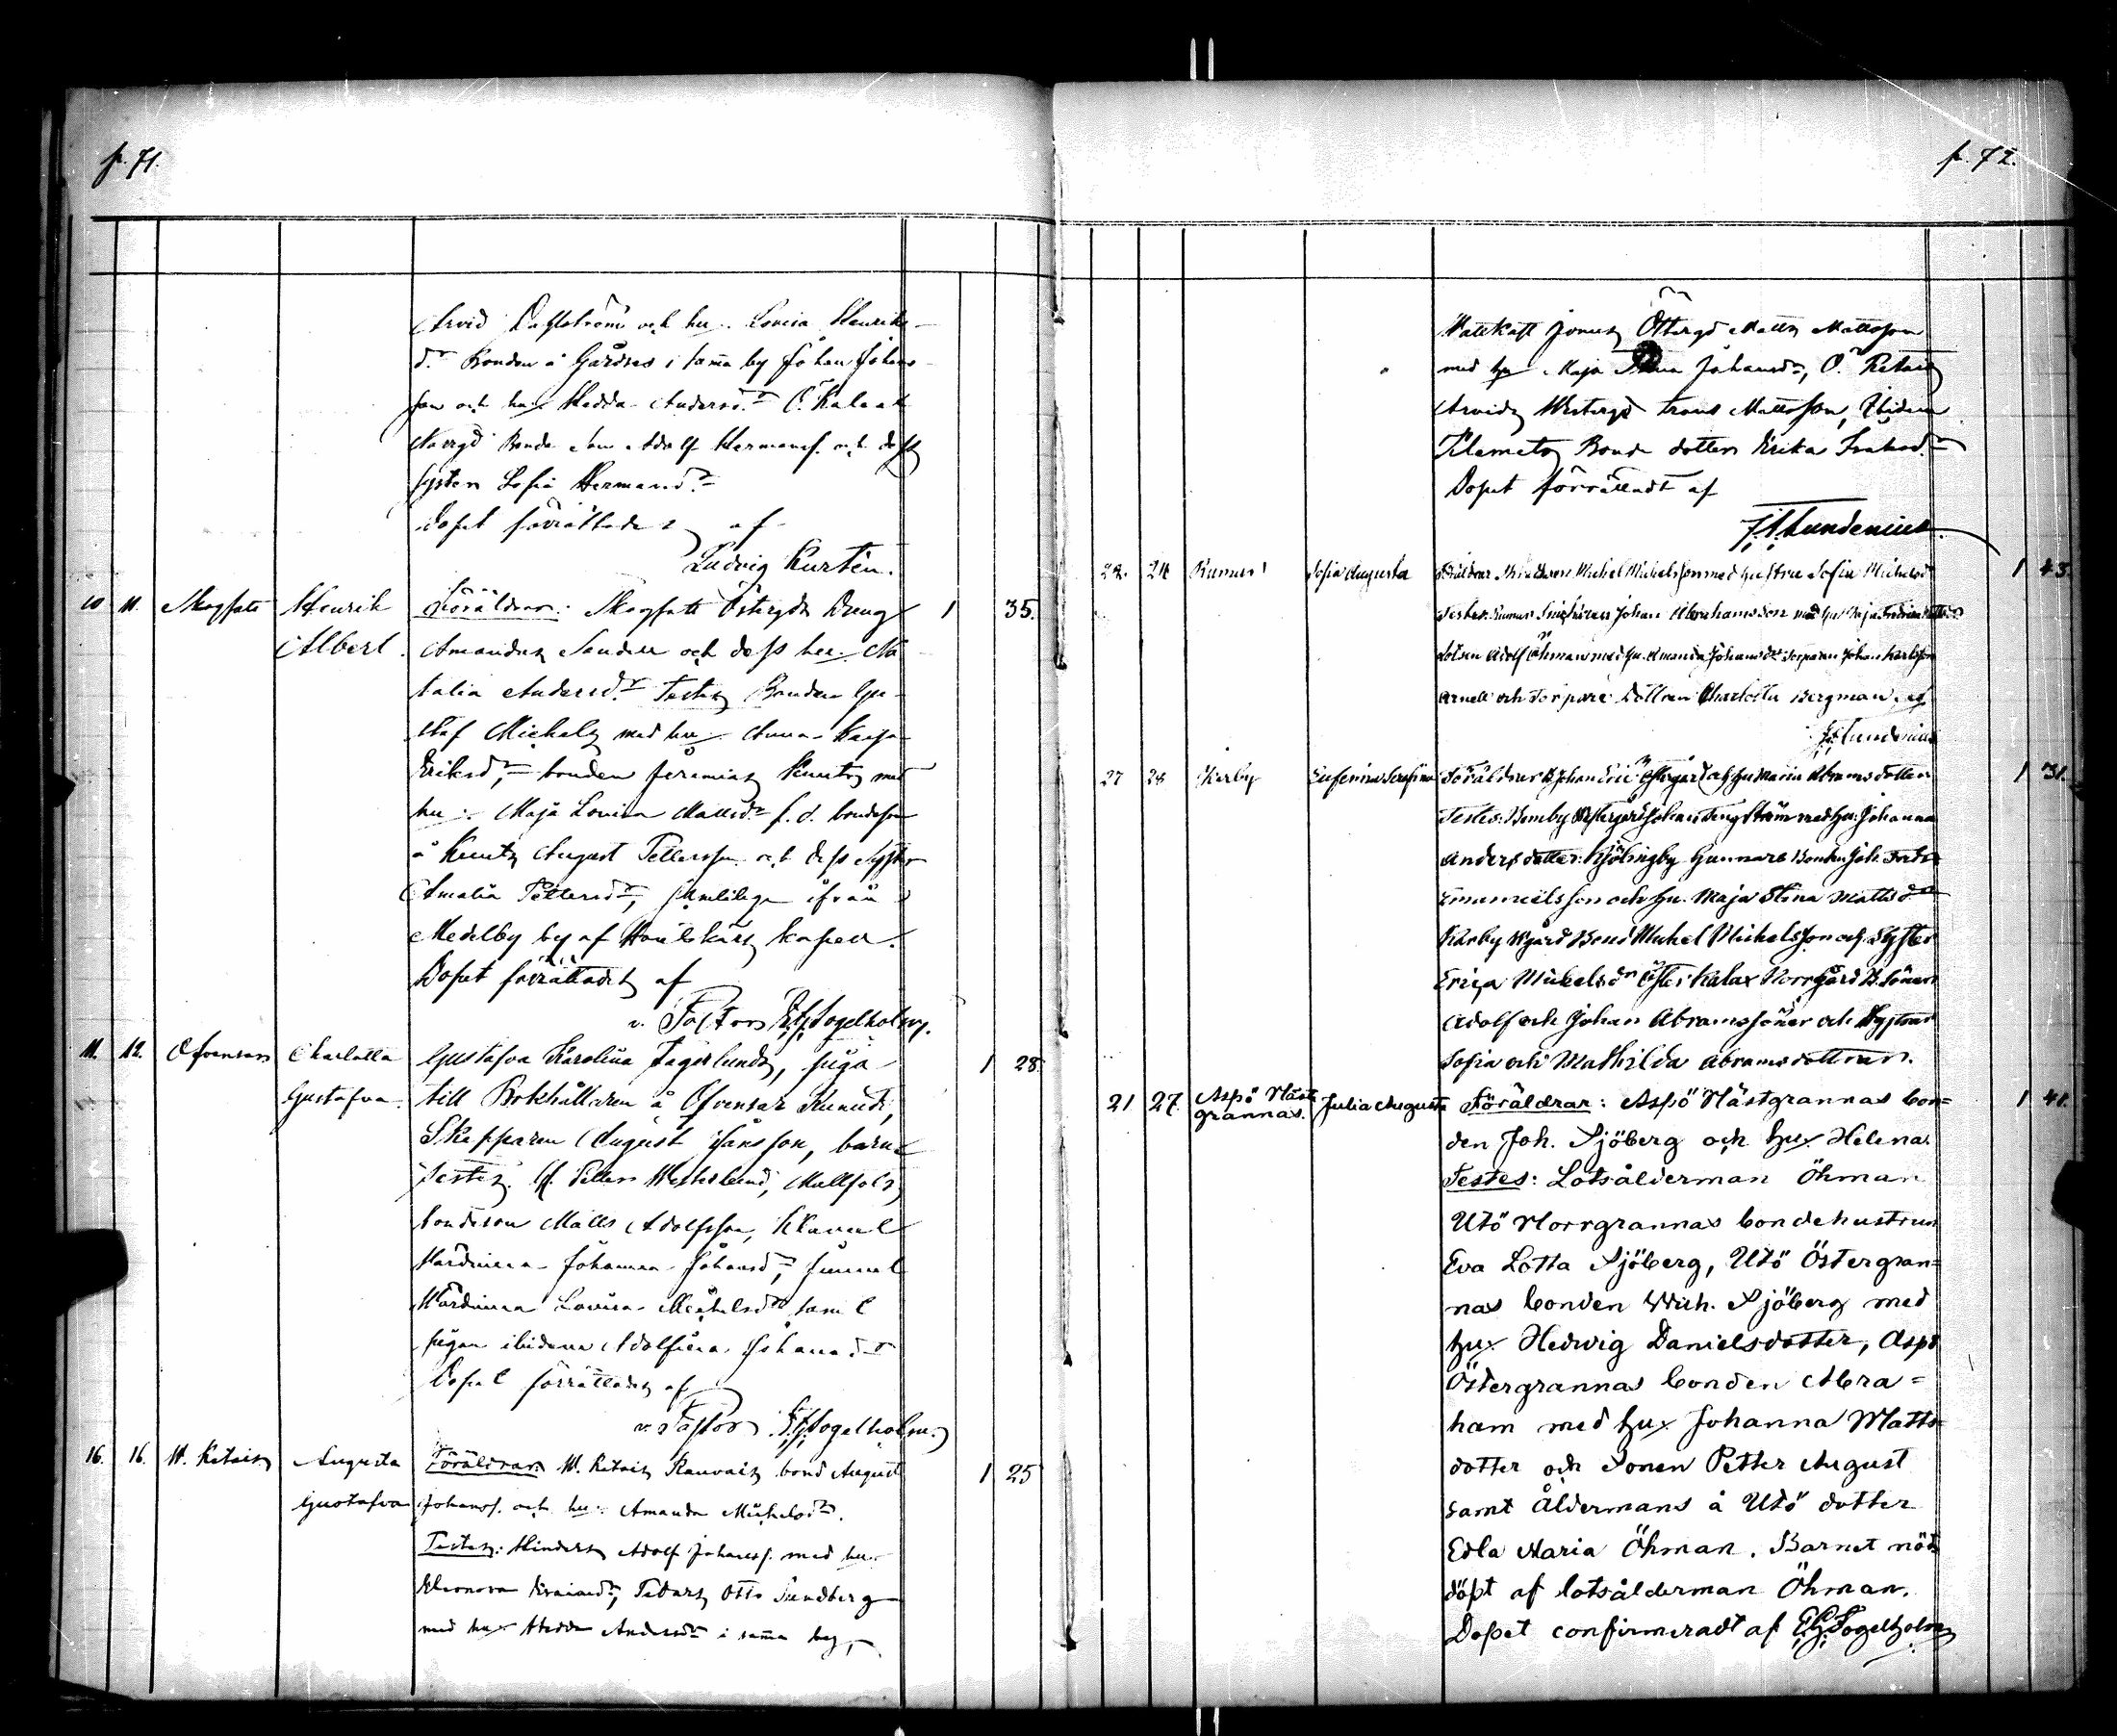 p. 71.
Arvid Dahlström och hu. Lovisa Henriks-
dr Bonden å Gårdnes i samma by Johan Johans-
son och hu. Hedda Andersdr Ö. Kalax
Norrgd Bonde son Adolf Hermansf. och dess
syster Sofia Hermansdr
Dopet förrättades af
Ludvig Kurtén.
10 11. Skogsatt Henrik Föräldrar: Skogsatt Östergds Dreng 1 35.
Albert. Amandus Sandell och dess hu. Na-
talia Andersdr Testes Bonden Gu-
staf Michels med hu. Anna Kaisa
Eriksdr, bonden Jeremias Knuts med
hu. Maja Lovisa Mattsdr f. d. bondeson
å Knuts August Pettersson och dess syster
Amalia Pettersdr, samtliga ifrån
Medelby by af Houtskärs kapell.
Dopet förrättadt af
v. Pastor E.G. Fogelholm.
11. 12. Ofvensar Charlotta Gustafva Karolina Fagerlunds, piga 1 28.
Gustafva. till Bokhållaren å Ofvensar Kunud,
Skepparen August Jansson, barn.
Testes. H. Petter Westerlund, Mattsols
bondeson Matts Adolfsson, Klemet
Värdinna Johanna Johansdr, Simmel
Värdinna Lovisa Michelsdr samt
pigan ibidem Adolfina Johansdr
Dopet förrättadt af
v. Pastor E.G. Fogelholm.
16. 16. W. Retais Augusta Föräldrar. W. Retais Rauvais bond August 1 25
Gustafva Johansf. och hu. Amanda Michelsdr.
Testes: Hinders Adolf Johansf. med hu.
Eleonora, Otto Sundberg
med hu. Hedda Andersdr i samma by,
p. 72.
Jonus Östergd Matts Mattsson
med hu Maja Stina Johansdr, Ö. Retais
Arvids Westergd Mattsson, Ibidem
Klemets Bond dotter Erika Isaksdr
Dopet förrättadt af
J.A. Lundenius.
22. 24 Rumar Sofia Augusta Föräldrar Michel Michelsson med hustru Sofia Michelsd 1 43.
Testes: Rumar Johan Abrahamsson med hu. Maja
Lotsen Adolf Öhman med hu. Amanda Johansdr Torparen Johan Karlsson
Arnell och Torpare Dottren Charlotta Bergman. af
J.A. Lundenius
27 28 Kirby Eufemina Serafina Föräldrar B. Johan Eric Östergård och hu Maria Abramsdotter 1 31.
Testes: Bemby Westergård Johan Engström med hu: Johanna
Andersdotter: Kjölingby Gunnars Bonden Joh. Ferd.
Emanuelsson och hu. Maja Stina Mattsdr
Kirby Wgård Bond Michel Michelsson och Syster
Erica Michelsdr Öster Kalax Norrgård B. Sönen
Adolf och Johan Abramssöner och Systrar
Sofia och Mathilda Abramsdottrar.
21 27. Aspö Näst- Julia Augusta Föräldrar: Aspö Nästgrannas bon= 1 41.
grannas. den Joh. Sjöberg och hu. Helena.
Testes: Lotsålderman Öhman
Utö Norrgrannas bondehustrun
Eva Lotta Sjöberg, Utö Östergran=
nas bonden Wich. Sjöberg med
hu. Hedwig Danielsdotter, Aspö
Östergrannas bonden Abra=
ham med hu. Johanna Matts-
dotter och Sonen Petter August
samt Åldermans å Utö dotter
Edla Maria Öhman. Barnet nöd-
döpt af lotsålderman Öhman.
Dopet confirmeradt af E.G. Fogelholm